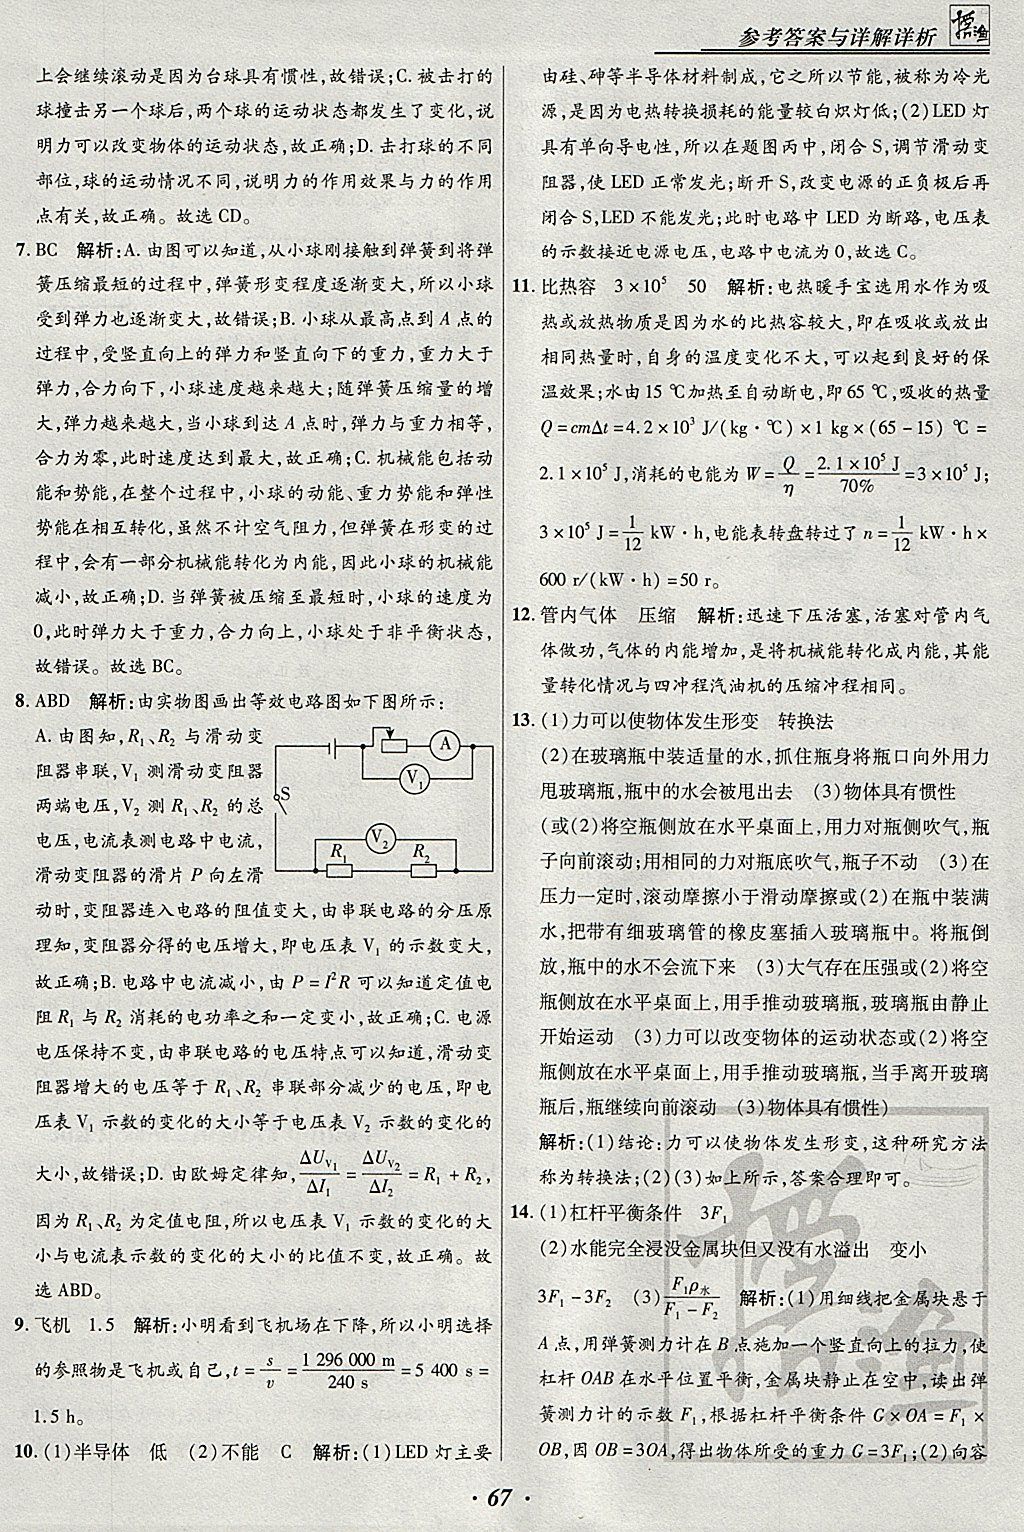 参考答案与详解详析
上会继续滚动是因为台球具有惯性,故错误;C. 被击打的
球撞击另一个球后,两个球的运动状态都发生了变化,说
明力可以改变物体的运动状态,故正确;D. 击打球的不同
部位,球的运动情况不同,说明力的作用效果与力的作用
点有关,故正确。故选 CD。
7. BC 解析:A. 由图可以知道,从小球刚接触到弹簧到将弹
簧压缩最短的过程中,弹簧形变程度逐渐变大,所以小球
受到弹力也逐渐变大,故错误;B. 小球从最高点到 A 点的
过程中,受竖直向上的弹力和竖直向下的重力,重力大于
弹力,合力向下,小球速度越来越大;随弹簧压缩量的增
大,弹力越来越大,当小球到达 A 点时,弹力与重力相等,
合力为零,此时速度达到最大,故正确;C. 机械能包括动
能和势能,在整个过程中,小球的动能、重力势能和弹性
势能在相互转化,虽然不计空气阻力,但弹簧在形变的过
程中,会有一部分机械能转化为内能,因此小球的机械能
减小,故正确;D. 当弹簧被压缩至最短时,小球的速度为
0,此时弹力大于重力,合力向上,小球处于非平衡状态,
故错误。故选 BC。
8. ABD 解析:由实物图画出等效电路图如下图所示:
A. 由图知,R₁、R₂ 与滑动变
阻器串联,V₁ 测滑动变阻器
两端电压,V₂ 测 R₁、R₂ 的总
电压,电流表测电路中电流,
滑动变阻器的滑片 P 向左滑
A
V₁
S
V₂
R₁ R₂
动时,变阻器连入电路的阻值变大,由串联电路的分压原
理知,变阻器分得的电压增大,即电压表 V₁ 的示数变大,
故正确;B. 电路中电流减小,由 P = I²R 可以知道定值电
阻 R₁ 与 R₂ 消耗的电功率之和一定变小,故正确;C. 电源
电压保持不变,由串联电路的电压特点可以知道,滑动变
阻器增大的电压等于 R₁、R₂ 串联部分减少的电压,即电
压表 V₁ 示数的变化的大小等于电压表 V₂ 示数的变化的
大小,故错误;D. 由欧姆定律知, ΔU_V₁/ΔI₁ = ΔU_V₂/ΔI₂ = R₁ + R₂,
因为 R₁、R₂ 为定值电阻,所以电压表 V₁ 示数的变化的大
小与电流表示数的变化的大小的比值不变,故正确。故
选 ABD。
9. 飞机 1.5 解析:小明看到飞机场在下降,所以小明选择
的参照物是飞机或自己,t = s/v = 1 296 000 m/240 s = 5 400 s =
1.5 h。
10. (1)半导体 低 (2)不能 C 解析:(1)LED 灯主要
由硅、砷等半导体材料制成,它之所以节能,被称为冷光
源,是因为电热转换损耗的能量较白炽灯低;(2)LED 灯
具有单向导电性,所以在题图丙中,闭合 S,调节滑动变
阻器,使 LED 正常发光;断开 S,改变电源的正负极后再
闭合 S,LED 不能发光;此时电路中 LED 为断路,电压表
的示数接近电源电压,电路中电流为 0,故选 C。
11. 比热容 3×10⁵ 50 解析:电热暖手宝选用水作为吸
热或放热物质是因为水的比热容较大,即在吸收或放出
相同热量时,自身的温度变化不大,可以起到良好的保
温效果;水由 15 ℃加热至自动断电,即 65 ℃,吸收的热量
Q = cmΔt = 4.2×10³ J/(kg·℃)×1 kg×(65-15) ℃ =
2.1×10⁵ J,消耗的电能为 W = Q/η = 2.1×10⁵ J/70% = 3×10⁵ J;
3×10⁵ J = 1/12 kW·h,电能表转盘转过了 n = 1/12 kW·h×
600 r/(kW·h) = 50 r。
12. 管内气体 压缩 解析:迅速下压活塞,活塞对管内气
体做功,气体的内能增加,是将机械能转化成内能,其能
量转化情况与四冲程汽油机的压缩冲程相同。
13. (1)力可以使物体发生形变 转换法
(2)在玻璃瓶中装适量的水,抓住瓶身将瓶口向外用力
甩玻璃瓶,瓶中的水会被甩出去 (3)物体具有惯性
(或(2)将空瓶侧放在水平桌面上,用力对瓶侧吹气,瓶
子向前滚动;用相同的力对瓶底吹气,瓶子不动 (3)在
压力一定时,滚动摩擦小于滑动摩擦或(2)在瓶中装满
水,把带有细玻璃管的橡皮塞插入玻璃瓶中。将瓶倒
放,瓶中的水不会流下来 (3)大气存在压强或(2)将空
瓶侧放在水平桌面上,用手推动玻璃瓶,玻璃瓶由静止
开始运动 (3)力可以改变物体的运动状态或(2)将空
瓶侧放在水平桌面上,用手推动玻璃瓶,当手离开玻璃
瓶后,瓶继续向前滚动 (3)物体具有惯性)
解析:(1)结论:力可以使物体发生形变,这种研究方法
称为转换法;(2)(3)如上所示,答案合理即可。
14. (1)杠杆平衡条件 3F₁
(2)水能完全浸没金属块但又没有水溢出 变小
3F₁-3F₂ (3) F₁ρ水/(F₁-F₂) 解析:(1)用细线把金属块悬于
A 点,用弹簧测力计在 B 点施加一个竖直向上的拉力,使
杠杆 OAB 在水平位置平衡,金属块静止在空中,读出弹
簧测力计的示数 F₁,根据杠杆平衡条件 G×OA = F₁×
OB,因 OB = 3OA,得出物体所受的重力 G = 3F₁;(2)向容
· 67 ·